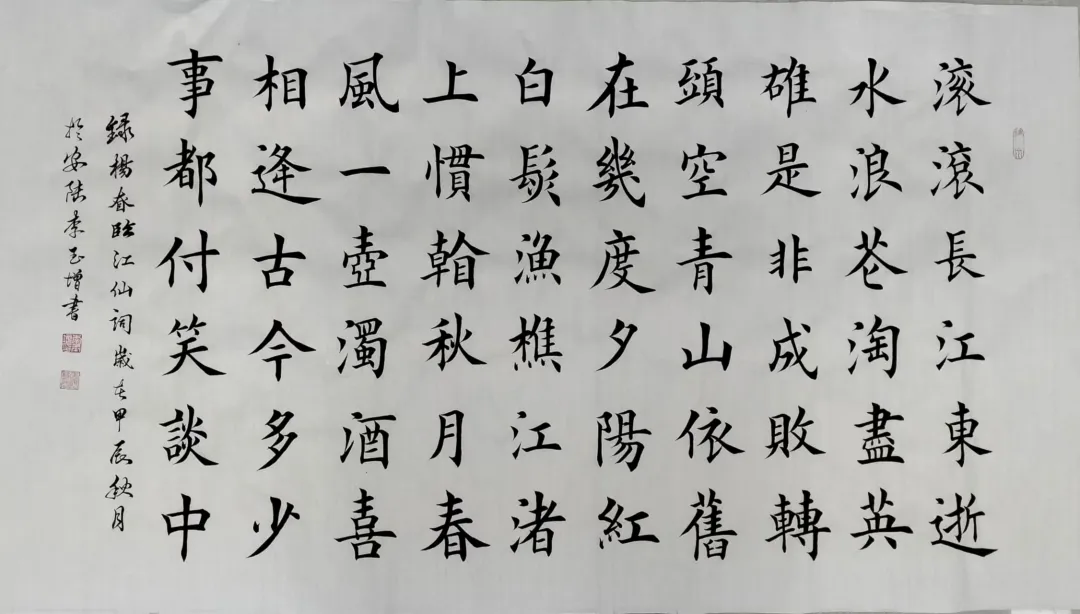 滚滾長江東逝
水浪花淘盡英
雄是非成敗轉
頭空青山依舊
在幾度夕陽紅
白髮漁樵江渚
上慣看秋月春
風一壺濁酒喜
相逢古今多少
事都付笑談中
録楊昚臨江仙詞歲在甲辰秋月
於安陸李玉增書